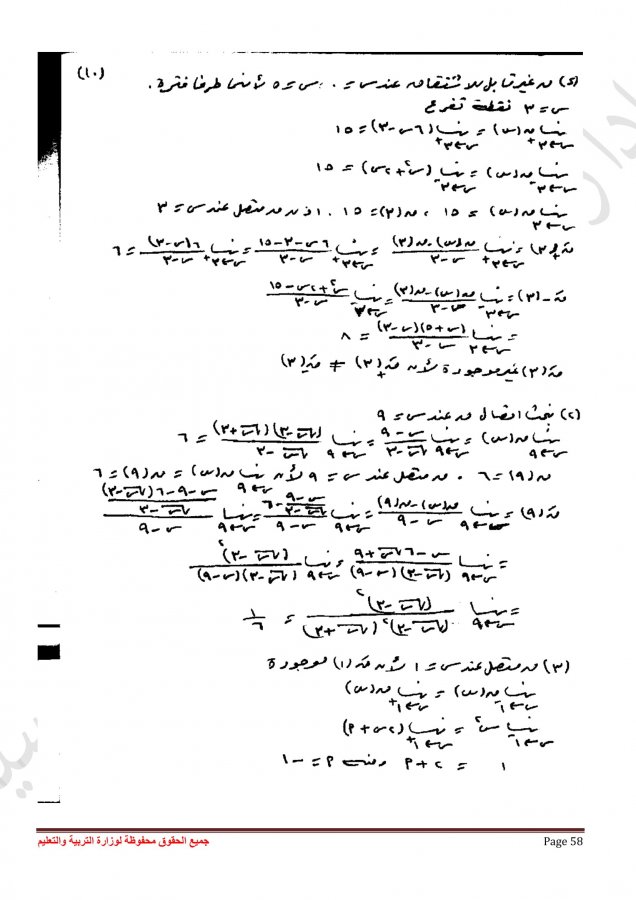 (١٠)
(د) ق غير قابل للاشتقاق عند س = ٠، س = ٥ لأنهما طرفا فترة.
س = ٣ نقطة تفرع
نهـا ق(س) = نهـا (٦س - ٣) = ١٥
س←٣+ س←٣+
نهـا ق(س) = نهـا (س² + ٢س) = ١٥
س←٣- س←٣-
نهـا ق(س) = ١٥ ، ق(٣) = ١٥ . اذن ق متصل عند س = ٣
س←٣
قَ+(٣) = نهـا ق(س) - ق(٣) / س - ٣ = نهـا ٦س - ٣ - ١٥ / س - ٣ = نهـا ٦(س - ٣) / س - ٣ = ٦
س←٣+ س←٣+ س←٣+
قَ-(٣) = نهـا ق(س) - ق(٣) / س - ٣ = نهـا س² + ٢س - ١٥ / س - ٣
س←٣- س←٣-
= نهـا (س + ٥)(س - ٣) / س - ٣ = ٨
س←٣-
قَ(٣) غير موجودة لأن قَ+(٣) ≠ قَ-(٣)
(٢) نبحث اتصال ق عند س = ٩
نهـا ق(س) = نهـا س - ٩ / √س - ٣ = نهـا (√س - ٣)(√س + ٣) / √س - ٣ = ٦
س←٩ س←٩ س←٩
ق(٩) = ٦ . ق متصل عند س = ٩ لأن نهـا ق(س) = ق(٩) = ٦
س←٩
قَ(٩) = نهـا ق(س) - ق(٩) / س - ٩ = نهـا (س - ٩ / √س - ٣) - ٦ / س - ٩ = نهـا (س - ٩ - ٦(√س - ٣) / √س - ٣) / س - ٩
س←٩ س←٩ س←٩
= نهـا س - ٦√س + ٩ / (√س - ٣)(س - ٩) = نهـا (√س - ٣)² / (√س - ٣)(س - ٩)
س←٩ س←٩
= نهـا (√س - ٣)² / (√س - ٣)²(√س + ٣) = ١/٦
س←٩
(٣) ق متصل عند س = ١ لأن قَ(١) موجودة
نهـا ق(س) = نهـا ق(س)
س←١- س←١+
نهـا س² = نهـا (٢س + م)
س←١- س←١+
١ = ٢ + م ومنه م = -١
جميع الحقوق محفوظة لوزارة التربية والتعليم
Page 58